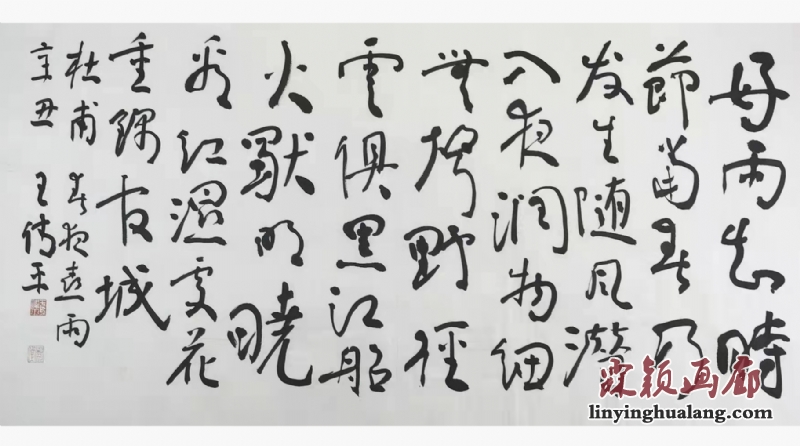 好雨知時
節當春乃
发生随风潛
入夜潤物細
無聲野徑
雲俱黑江船
火獨明曉
看紅濕處花
重錦官城
杜甫 春夜喜雨
辛丑 王
霖颖画廊
linyinghualang.com